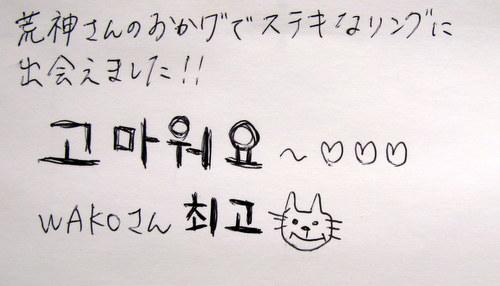 荒神さんのおかげでステキなリングに
出会えました!!
고마워요~♡♡♡
WAKOさん 최고